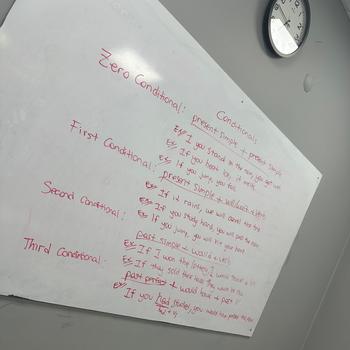 Conditionals
Zero Conditional: present simple + present simple
Ex: If you stand in the rain, you get wet
Ex: If you heat ice, it melts
Ex: If you jump, you fall
First Conditional: present simple + will
Ex: If it rains, we will cancel the trip
Ex: If you study hard, you will pass the exam
Ex: If you jump, you will hit your head
Second Conditional: past simple + would + verb
Ex: If I won the lottery, I would
Ex: If they sold their house, they would be rich
Third Conditional: past perfect + would have + past
Ex: If you had studied, you would have passed the exam